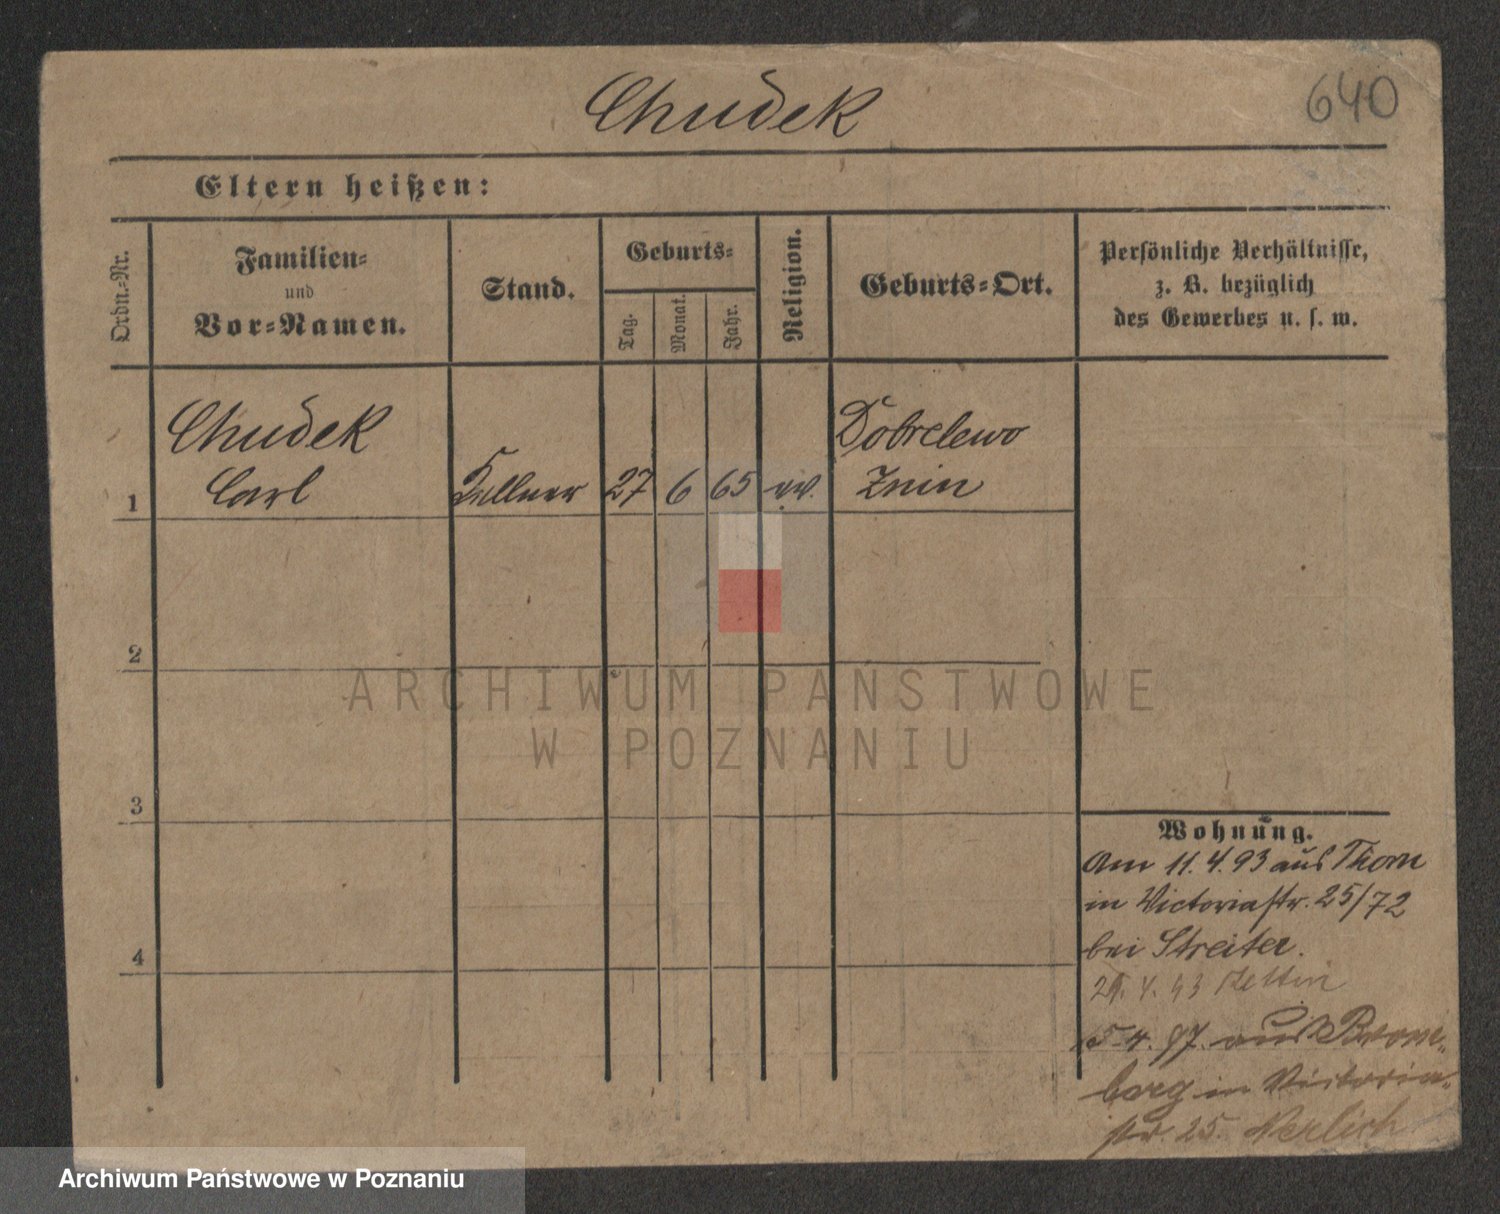 Chudek
640
Eltern heißen:
Ordn.-Nr.
Familien-
und
Vor-Namen.
Stand.
Geburts-
Tag.
Monat.
Jahr.
Religion.
Geburts-Ort.
Persönliche Verhältnisse,
z. B. bezüglich
des Gewerbes u. s. w.
Chudek
Carl
1
Kellner
27
6
65
ev.
Dobrelewo
Znin
2
ARCHIWUM PAŃSTWOWE
W POZNANIU
3
4
Wohnung.
Am 11.4.93 aus Thorn
in Victoriastr. 25/72
bei Streiter.
4. 93
5.4.97. aus Brom-
berg in Victoria-
str. 25. Nerlich
Archiwum Państwowe w Poznaniu